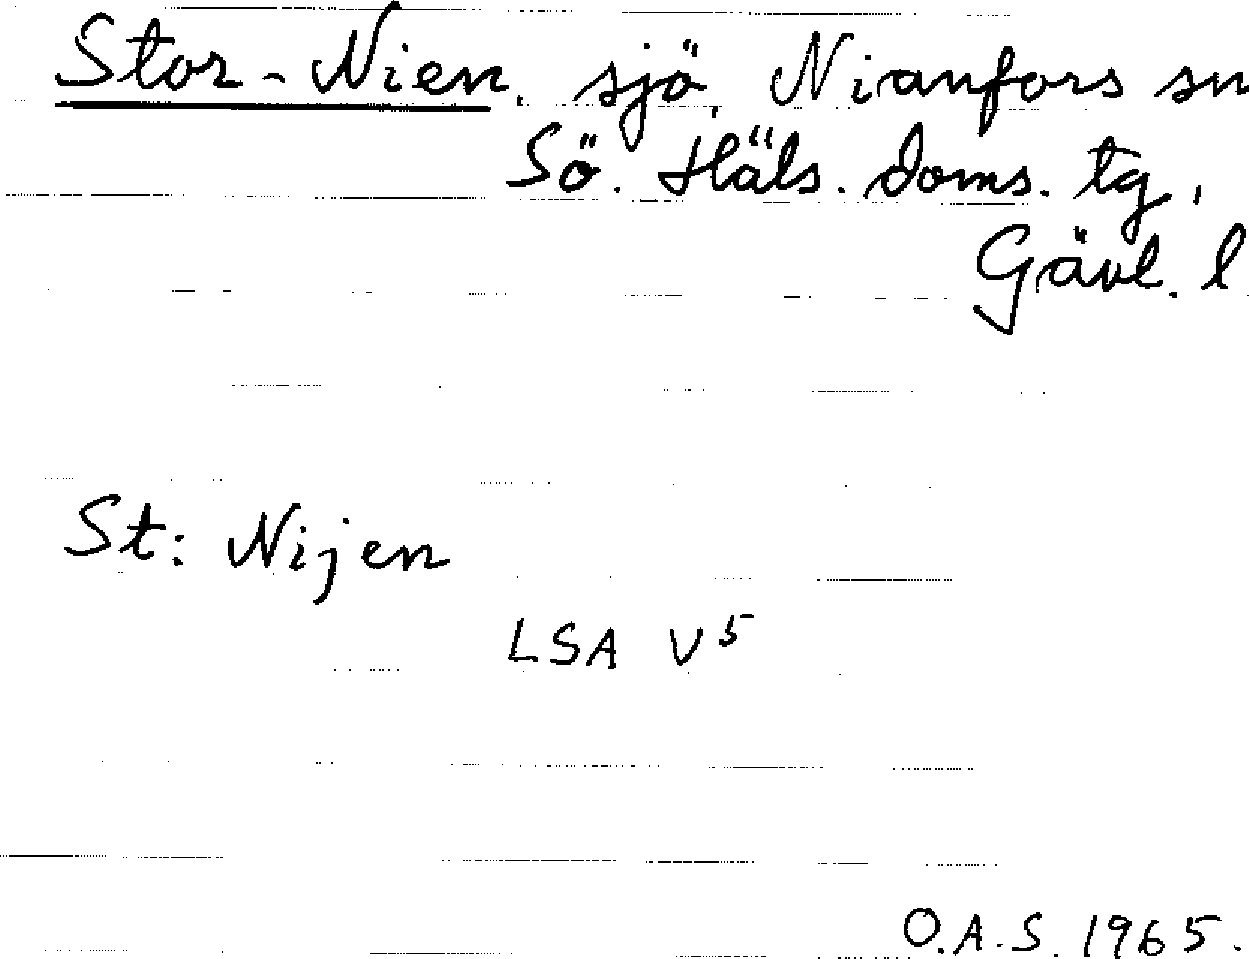 Stor-Nien, sjö, Nianfors sn
Sö. Häls. doms. tg,
Gävl. l
St: Nijen
LSA V⁵
O.A.S. 1965.